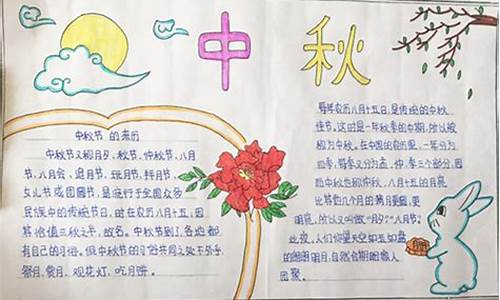 中秋
中秋节的来历
中秋节又称月夕、秋节、仲秋节、八月
节、八月会、追月节、玩月节、拜月节、
女儿节或团圆节，是流行于全国众多
民族中的传统节日，时在农历八月十五；因
其恰值三秋之半，故名。中秋节到了，各地都
有自己的习俗。但中秋节的习俗共同之处不外乎
祭月、赏月、观花灯、吃月饼。
每年农历八月十五日，是传统的中秋
佳节。这时是一年秋季的中期，所以被
称为中秋。在中国的农历里，一年分为
四季，每季又分为孟、仲、季三个部分，因
而中秋也称仲秋。八月十五的月亮
比其他几个月的满月更圆，更
明亮，所以又叫做“月夕”“八月节”。
此夜，人们仰望天空如玉如盘
的朗朗明月，自然会期盼家人
团聚。